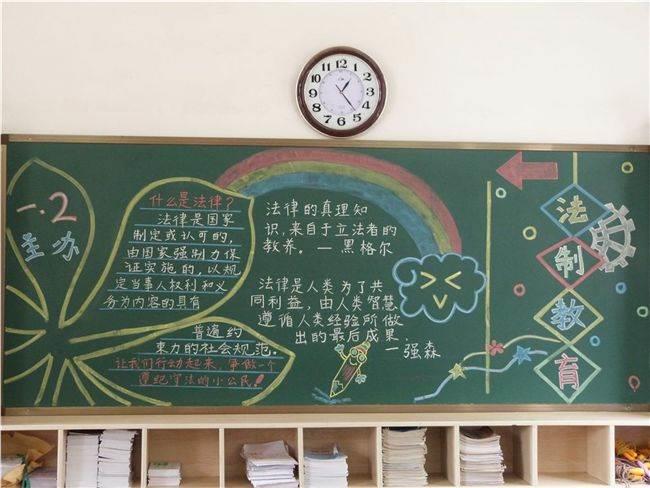 12
1
2
3
4
5
6
7
8
9
10
11
一.2
主办
什么是法律?
法律是国家
制定或认可的,
由国家强制力保
证实施的,以规
定当事人权利和义
务为内容的具有
普遍约
束力的社会规范。
让我们行动起来,争做一个
遵纪守法的小公民
法律的真理知
识,来自于立法者的
教养。—黑格尔
法律是人类为了共
同利益,由人类智慧
遵循人类经验所做
出的最后成果
—强森
法
制
教
育